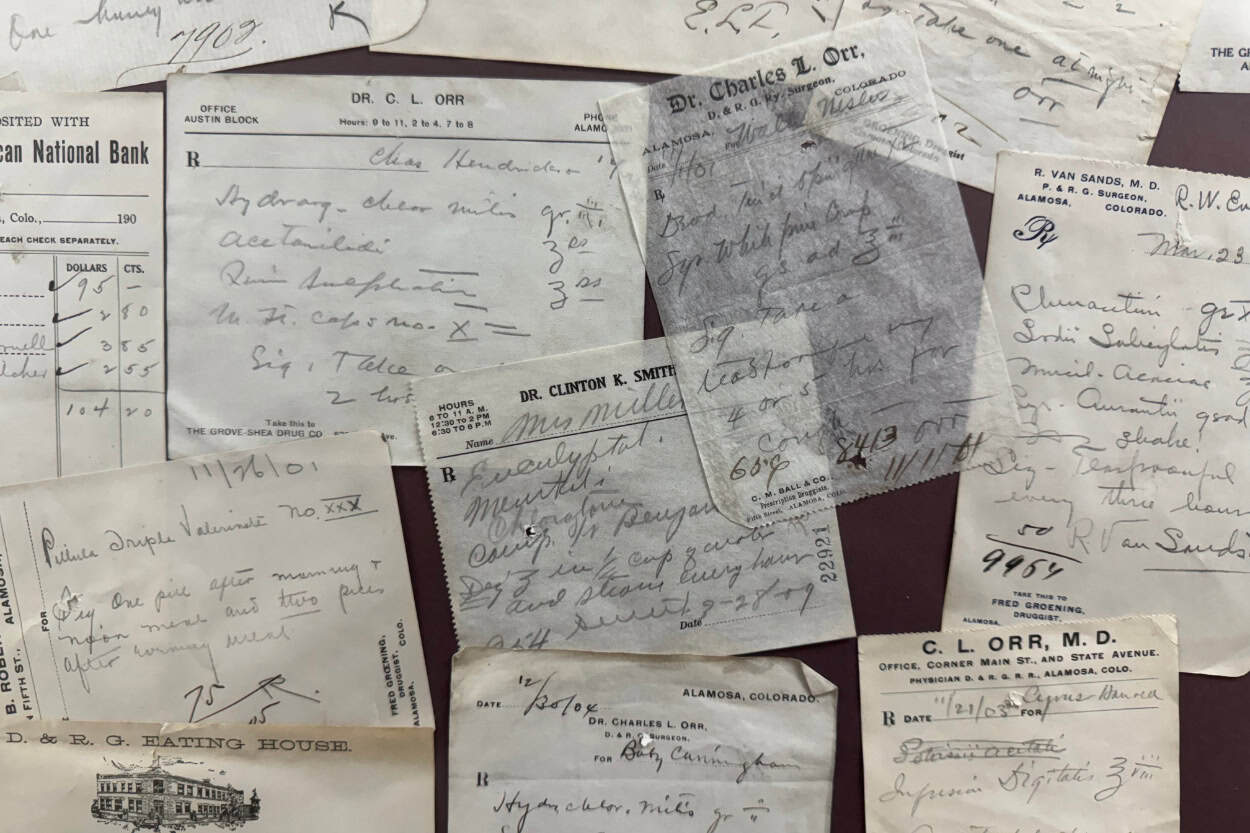 One
7902.
E.L.T.
take one at night
Orr
THE GR
OSITED WITH
can National Bank
Colo., 190
EACH CHECK SEPARATELY.
DOLLARS CTS.
95 —
2 80
3 85
2 55
104 20
DR. C. L. ORR
OFFICE
AUSTIN BLOCK
Hours: 9 to 11, 2 to 4, 7 to 8
PHONE
ALAMOSA
R
Chas Hendrickson
Hydrarg. chlor mitis gr.
Acetanilidi ʒ ss
Quin Sulphatis ʒ ss
M. Ft. caps no. X
Sig. Take
2 hrs
Take this to
THE GROVE-SHEA DRUG CO
Dr. Charles L. Orr,
D. & R. G. Ry. Surgeon,
ALAMOSA, COLORADO
Date For
R
Syr White pine Comp
qs ad ʒ iii
Sig. Take a
teaspoonful
4 or 5 hrs for
cough
658 8413 Orr
C. M. BALL & CO.
Prescription Druggists,
Fifth Street, ALAMOSA, COLO.
GROENING, Druggist
R. VAN SANDS, M. D.
P. & R. G. SURGEON,
ALAMOSA, COLORADO.
R. W.
Mar, 23
Rx
Sodii Salicylatis
Mucil. Acaciae
Syr. Aurantii qsad
Shake
Sig - Teaspoonful
every three hours
50 R Van Sands
9964
TAKE THIS TO
FRED GROENING,
DRUGGIST,
ALAMOSA,
DR. CLINTON K. SMITH
HOURS
8 TO 11 A. M.
12:30 TO 2 P M
6:30 TO 8 P.M
Name Mrs Miller
R
Eucalyptol.
Menthol
Chloretone
comp. Tr Benzoin
ʒ in ½ cup of water
and steam every hour
Date 9-28-09
22921
11/26/01
Pilula Triple Valerinate No. XXX
FOR
Sig One pill after morning &
noon meal and two pills
after evening meal
75
B. ROBER
FIFTH ST., ALAMOSA,
FRED GROENING,
DRUGGIST,
ALAMOSA, COLO.
D. & R. G. EATING HOUSE.
DATE 12/30/04
ALAMOSA, COLORADO.
DR. CHARLES L. ORR,
D. & R. G. SURGEON,
FOR Baby Cunningham
R
Hydr. chlor. mitis gr
C. L. ORR, M. D.
OFFICE, CORNER MAIN ST., AND STATE AVENUE.
PHYSICIAN D. & R. G. R. R., ALAMOSA, COLO.
R DATE 11/21/03 FOR Cyrus
Potassii acetatis
Infusion Digitalis ʒ viii